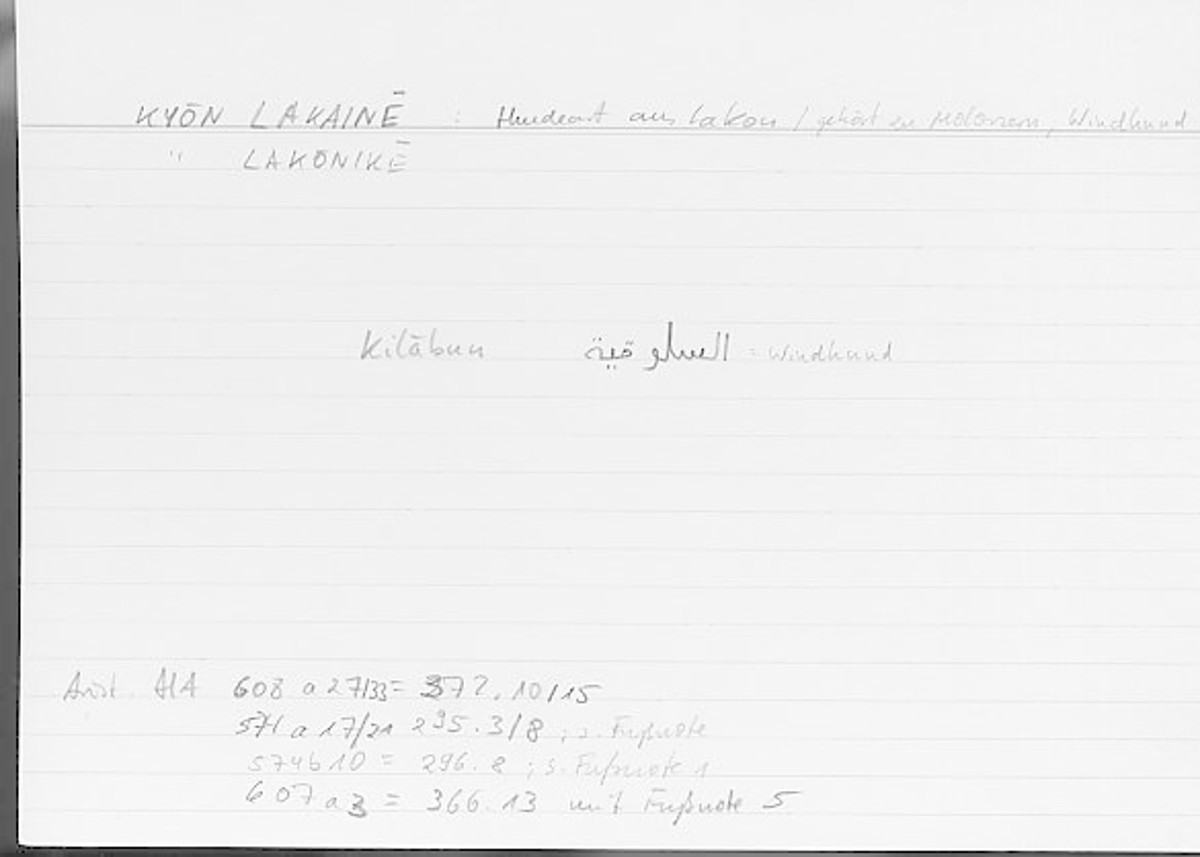 KYŌN LAKAINĒ : Hundeart aus Lakon / gehört zu Molossern, Windhund
" LAKŌNIKĒ
Kilābun السلوقية = Windhund
Arist. HA 608 a 27/33 = 372.10/15
571 a 17/21 295.3/8 ; s. Fußnote
574b10 = 296.8 ; s. Fußnote 1
607 a 3 = 366.13 mit Fußnote 5